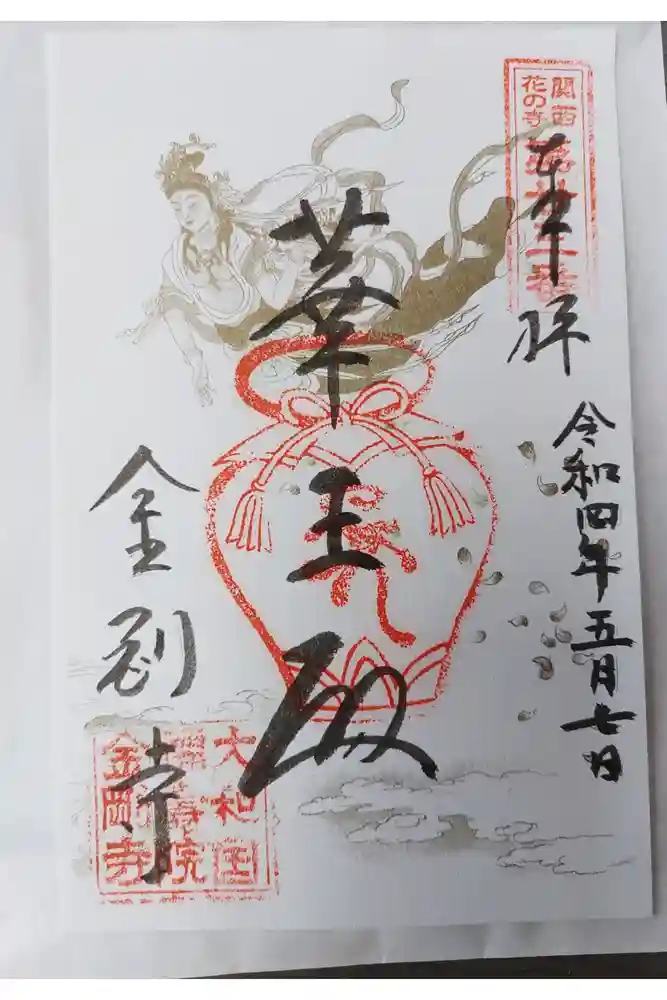 関西
花の寺
奉拝
令和四年五月七日
華王殿
金剛寺
大和国
金剛寺